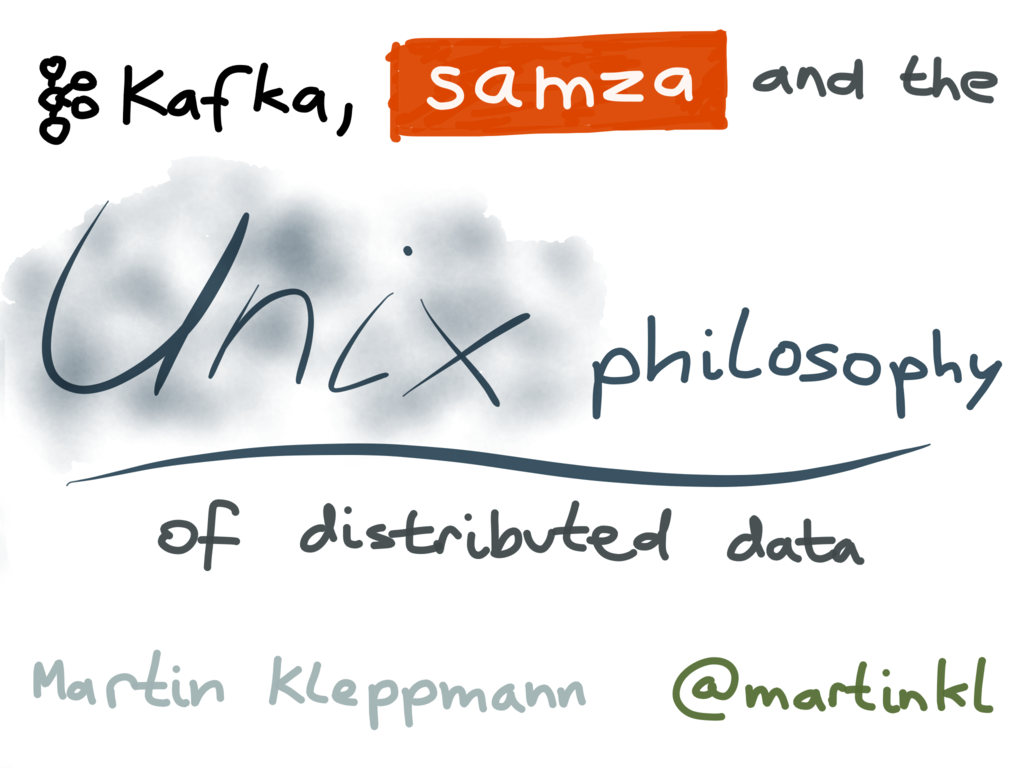 Kafka, samza and the
Unix philosophy
of distributed data
Martin Kleppmann @martinkl